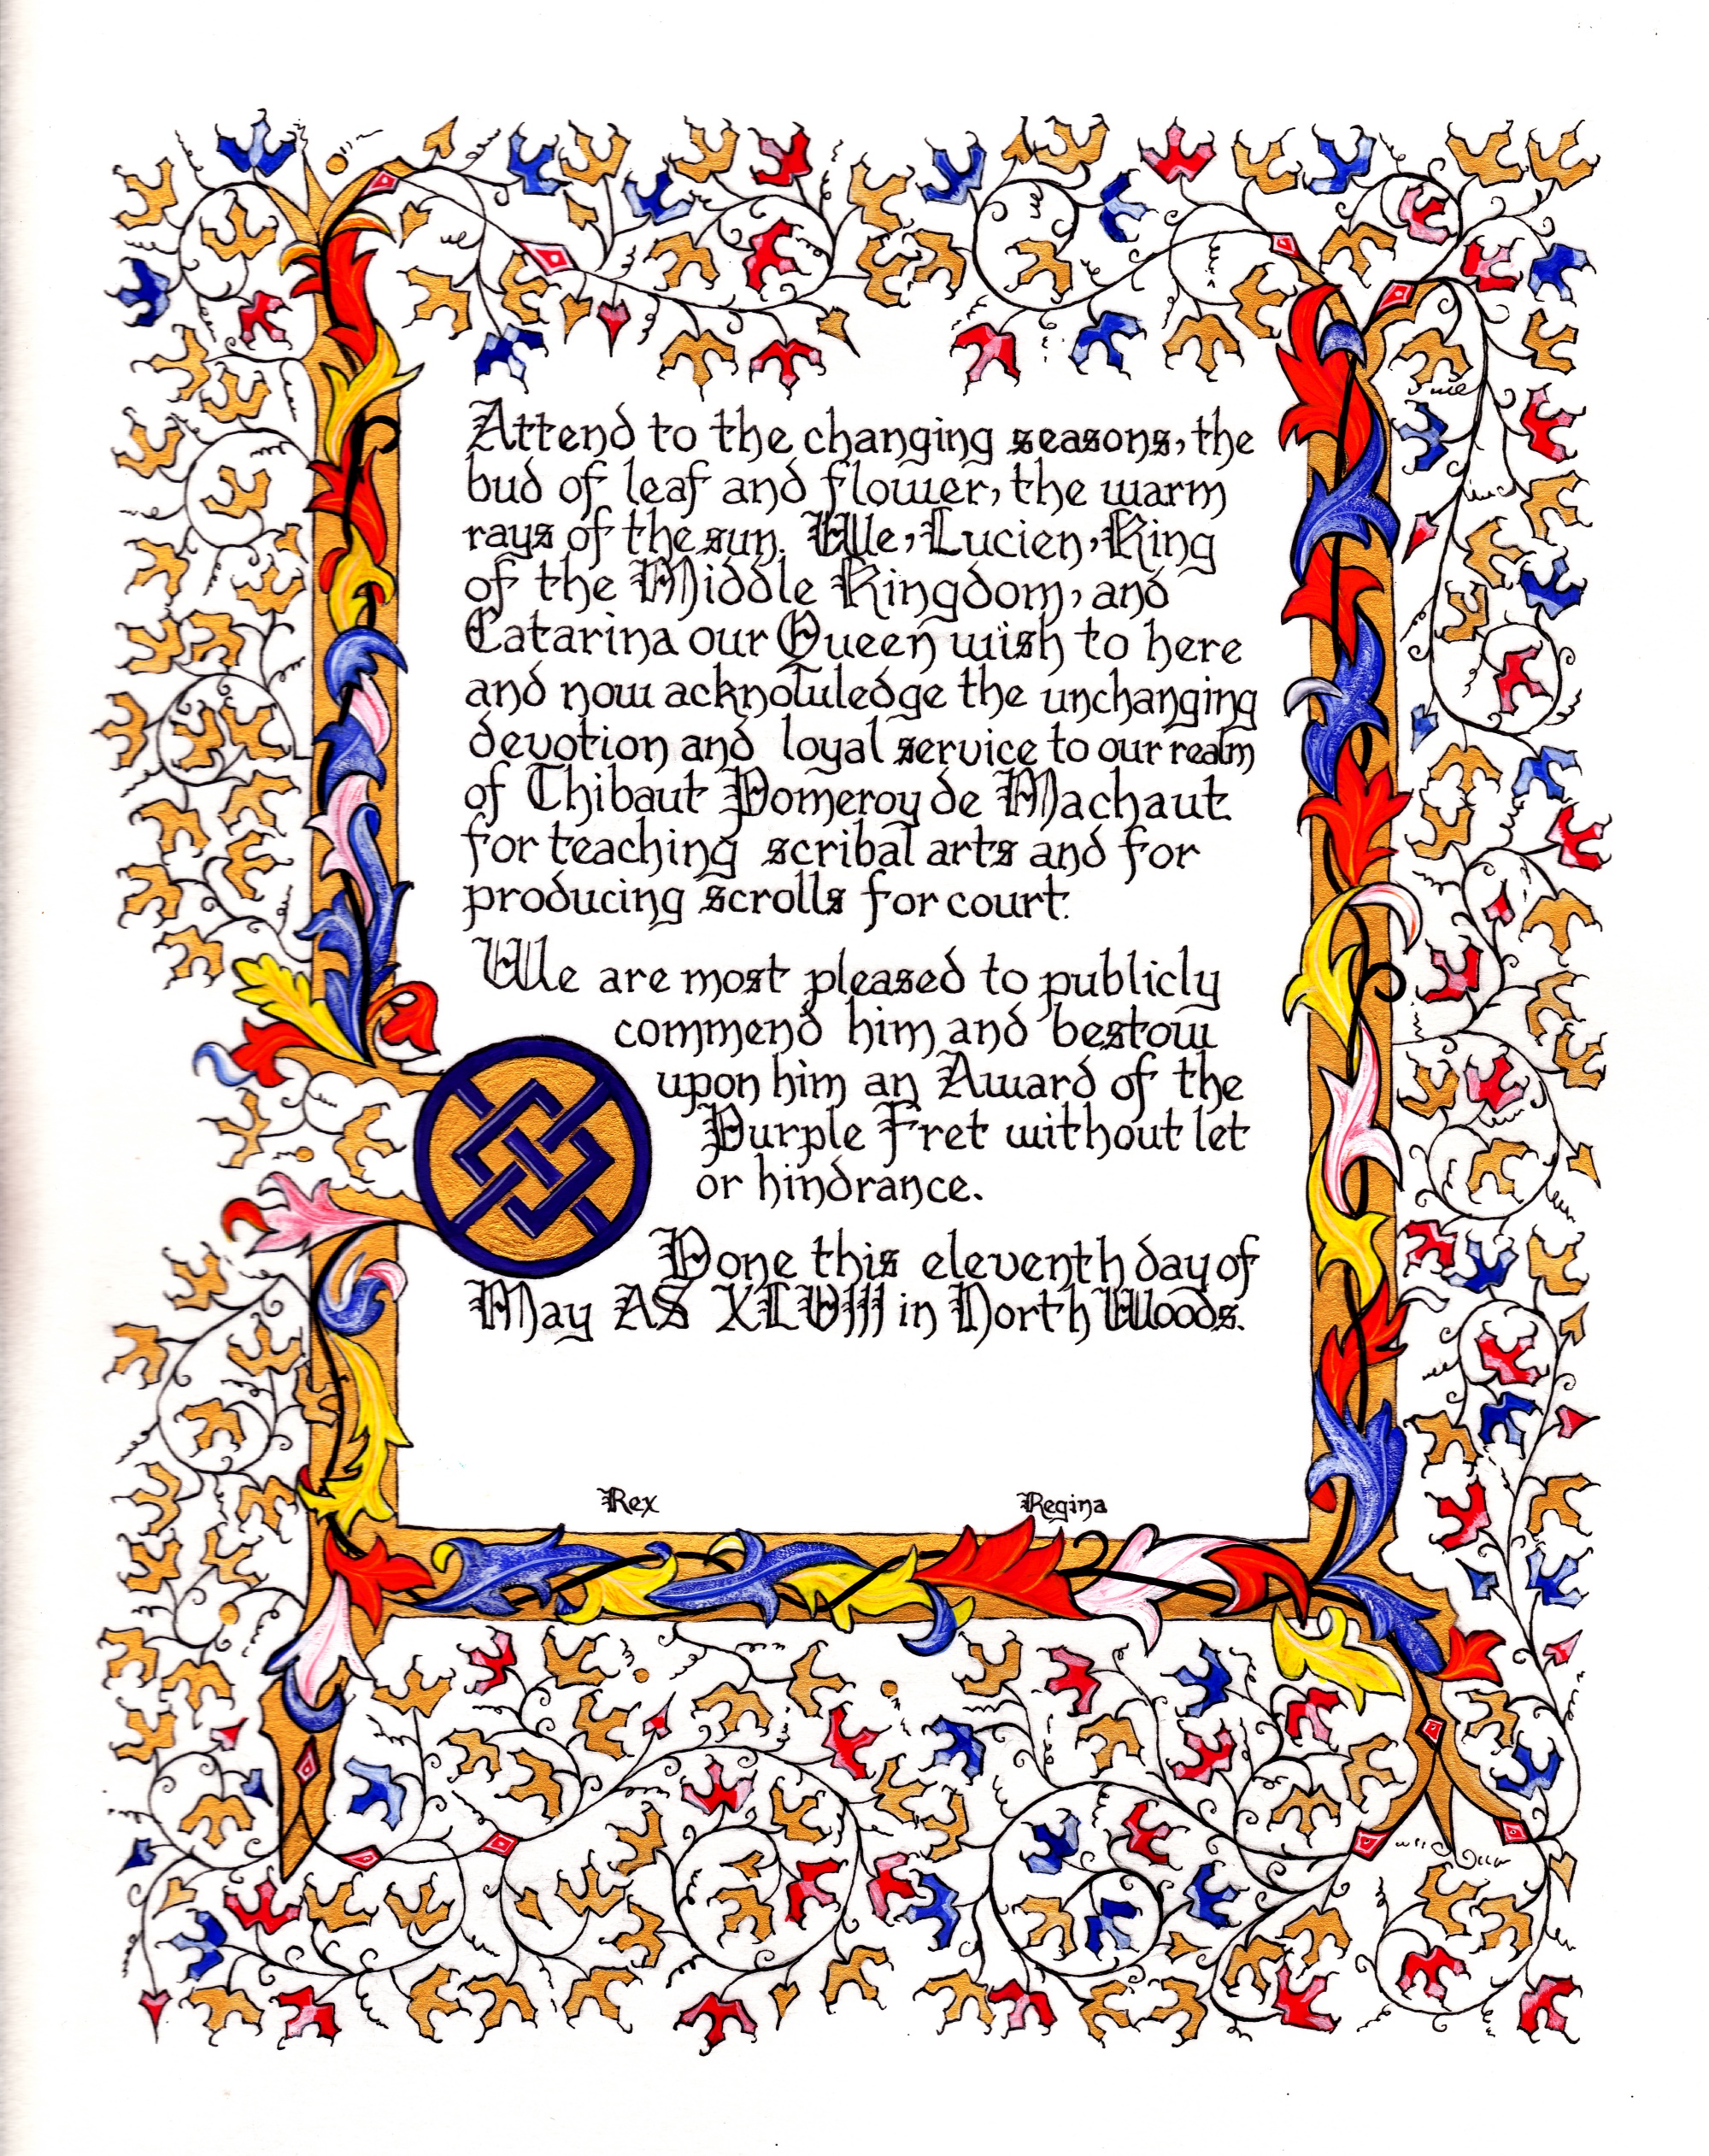 Attend to the changing seasons, the
bud of leaf and flower, the warm
rays of the sun. We, Lucien, King
of the Middle Kingdom, and
Catarina our Queen wish to here
and now acknowledge the unchanging
devotion and loyal service to our realm
of Thibaut Pomeroy de Machaut
for teaching scribal arts and for
producing scrolls for court.
We are most pleased to publicly
commend him and bestow
upon him an Award of the
Purple Fret without let
or hindrance.
Done this eleventh day of
May AS XLVIII in North Woods.
Rex Regina